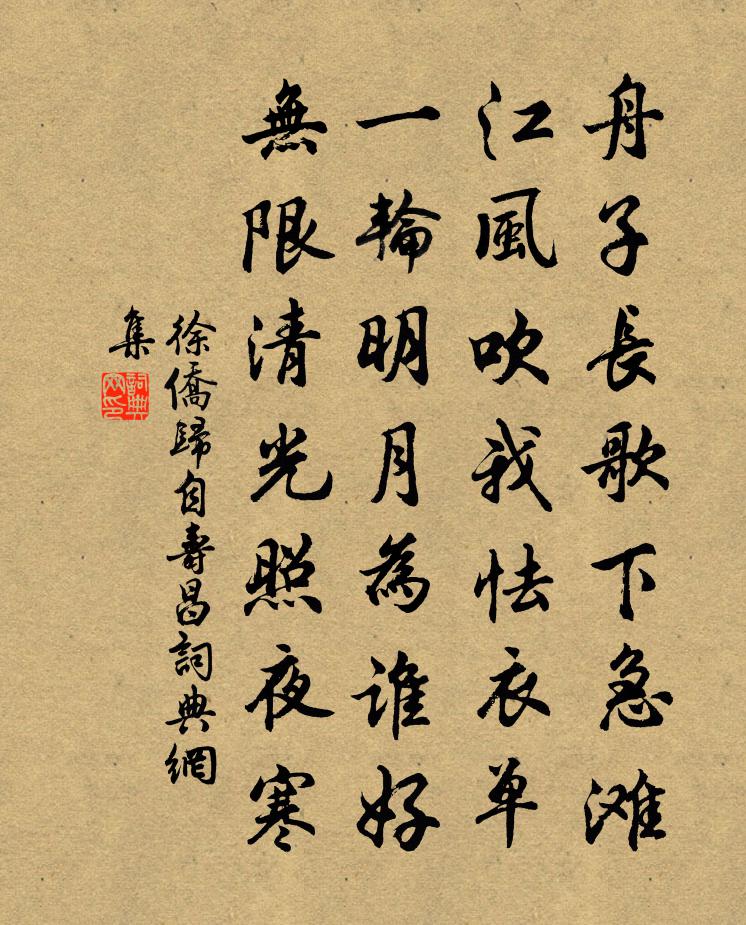 舟子長歌下急滩
江風吹我怯衣单
一輪明月為誰好
無限清光照夜寒
徐僑歸自壽昌詞典網
集
詞典网印